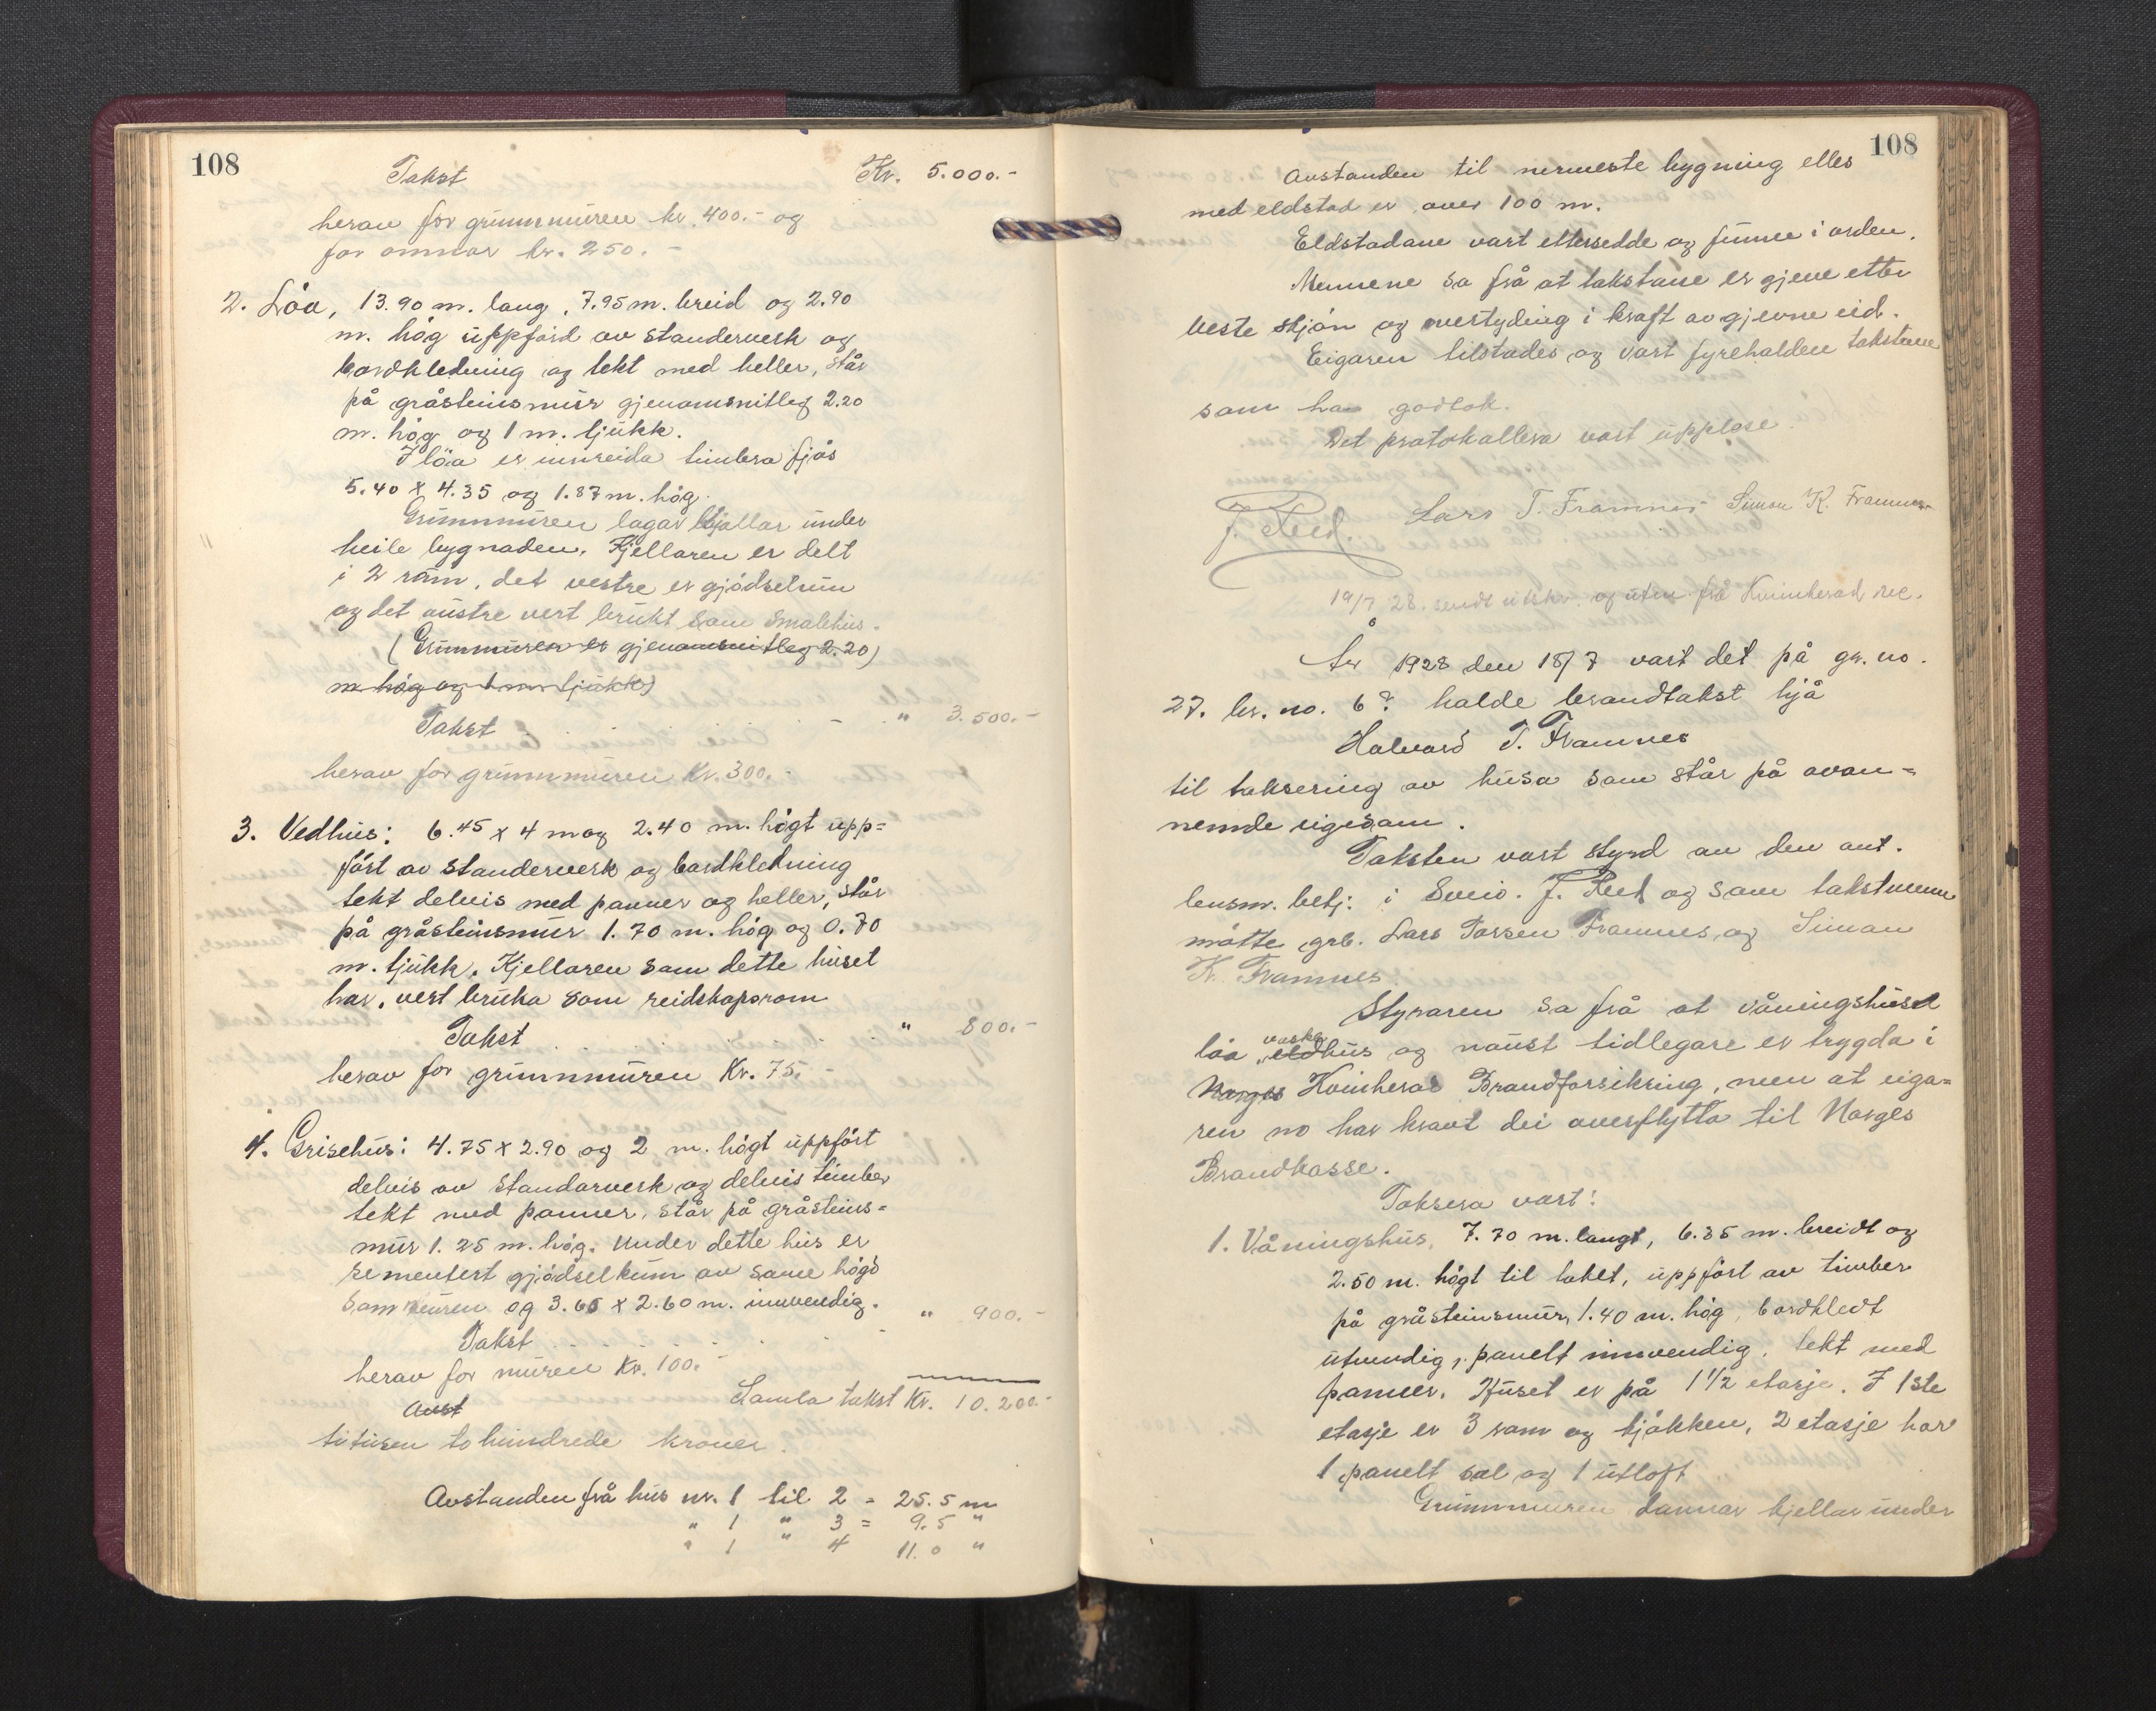 108
Takst Kr. 5.000.-
herav for grunnmuren kr. 400.- og
for omnar kr. 250.-
2. Löa, 13.90 m. lang, 7.95 m. breid og 2.90
m. høg uppførd av standerverk og
bordkledning og tekt med heller, står
på gråsteinsmur gjenomsnitleg 2.20
m. høg og 1 m. tjukk.
I löa er innreida timbra fjös
5.40 x 4.35 og 1.87 m. høg.
Grunnmuren lagar kjellar under
heile bygnaden. Kjellaren er delt
i 2 rom, det vestre er gjødselrum
og det austre vert brukt som smalehus.
(Grunnmuren er gjenomsnitleg 2.20)
m høg og 1 m tjukk)
Takst " 3.500.-
herav for grunnmuren Kr. 300.-
3. Vedhus: 6.45 x 4 m og 2.40 m. høgt upp=
ført av standerverk og bordkledning
tekt delvis med panner og heller, står
på gråsteinsmur 1.70 m. høg og 0.70
m. tjukk. Kjellaren som dette huset
har, vert bruka som reidskapsrom
Takst " 800.-
herav for grunnmuren Kr. 75.-
4. Grisehus: 4.75 x 2.90 og 2 m. høgt uppført
delvis av standarverk og delvis timber
tekt med panner, står på gråsteins=
mur 1.25 m. høg. Under dette hus er
sementert gjødselkum av same høgd
som muren og 3.65 x 2.60 m. innvendig.
Takst " 900.-
herav for muren Kr. 100.-
Avst Samla takst Kr. 10.200.-
titusen tohundrede kroner.
Avstanden frå hus nr. 1 til 2 = 25.5 m
" 1 " 3 = 9.5 "
" 1 " 4 11.0 "
108
Avstanden til nermeste bygning elles
med eldstad er over 100 m.
Eldstadane vart ettersedde og funne i orden.
Mennene sa frå at takstane er gjeve etter
beste skjøn og overtyding i kraft av gjevne eid.
Eigaren tilstades og vart fyrehalden takstane
som han godtok.
Det protokollera vart upplese.
J. Reed. Lars T. Framnes Simon K. Framnes
19/7 28. sendt utskr. og utm. frå Kvinherad
År 1928 den 18/7 vart det på gr. no.
27. br. no. 6? halde brandtakst hjå
Halvard T. Framnes
til taksering av husa som står på ovan=
nemde eigedom.
Taksten vart styrd av den aut.
lensm. betj. i Sveio. J. Reed og som takstmenn
møtte grb. Lars Torsen Framnes og Simon
K. Framnes.
Styraren sa frå at våningshuset
vaske
löa eldhus og naust tidlegare er trygda i
Norges Kvinherad Brandforsikring, men at eiga=
ren no har kravt dei overflytta til Norges
Brandkasse.
Taksera vart:
1. Våningshus, 7.70 m. langt, 6.35 m. breidt og
2.50 m. høgt til taket, uppført av timber
på gråsteinsmur, 1.40 m. høg, bordkledt
utvendig, panelt innvendig, tekt med
panner. Huset er på 1 1/2 etasje. I 1ste
etasje er 3 rom og kjøkken, 2 etasje har
1 panelt sal og 1 utloft
Grunnmuren dannar kjellar under